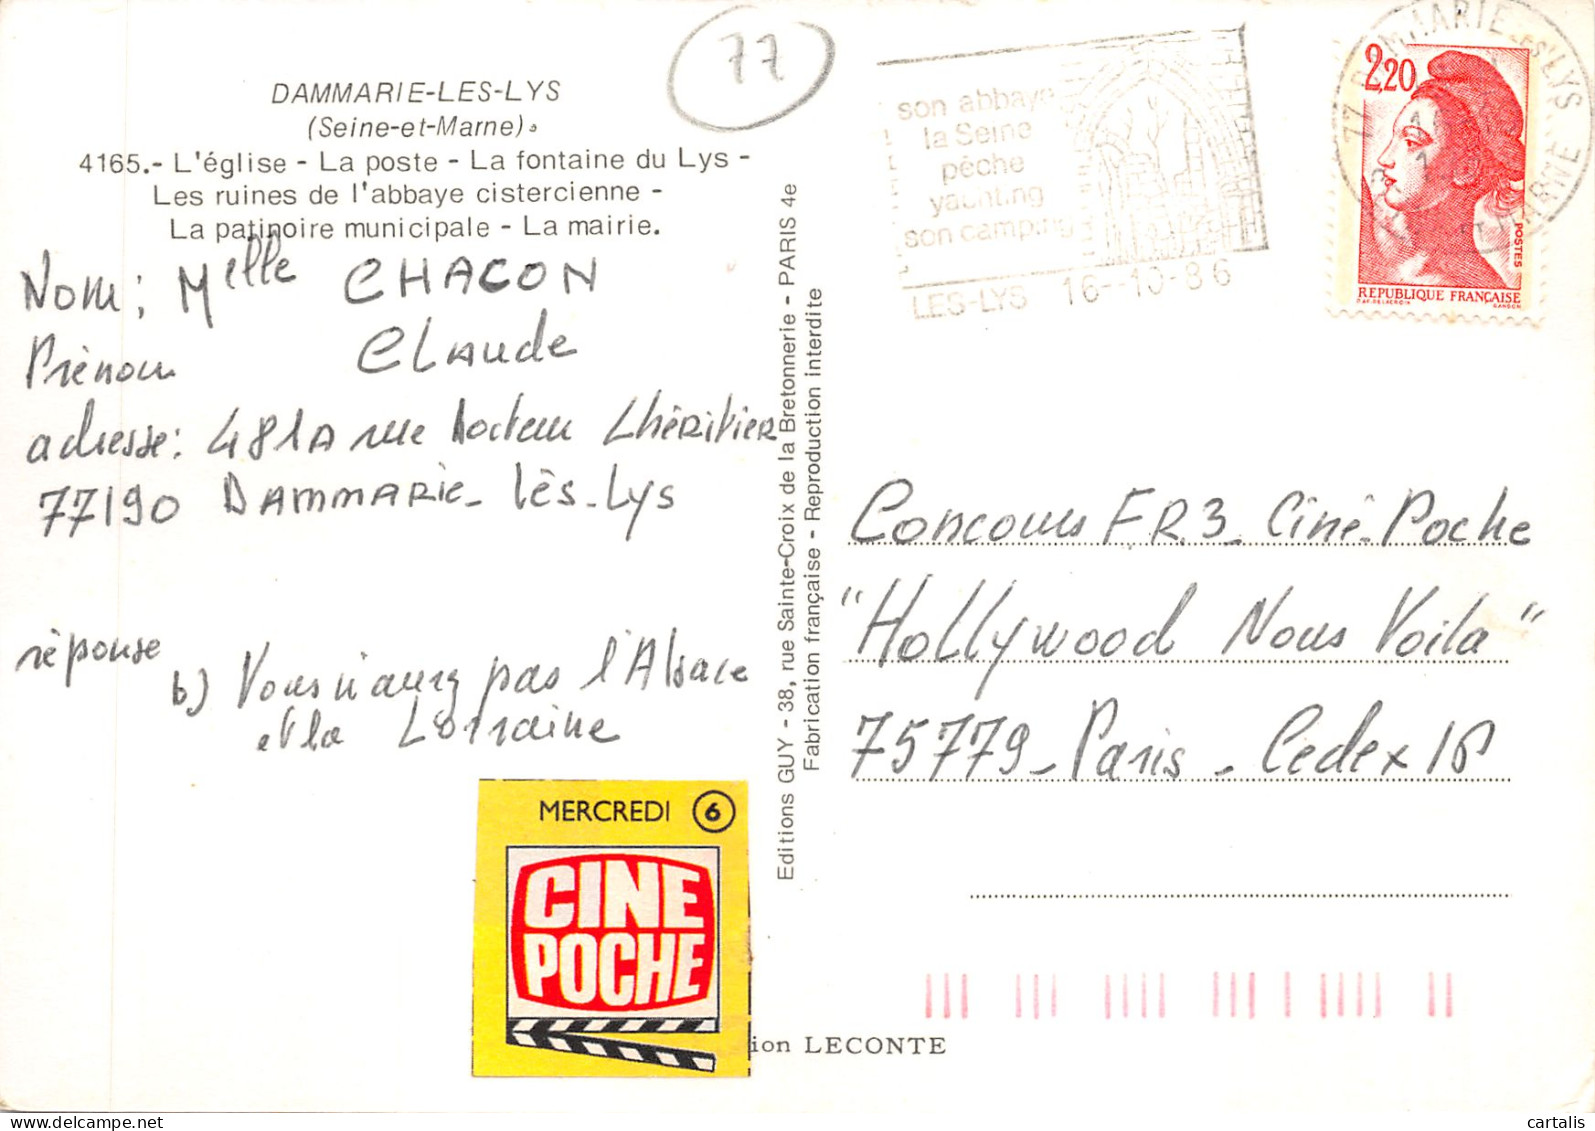 77
DAMMARIE-LES-LYS
(Seine-et-Marne)
4165.- L'église - La poste - La fontaine du Lys -
Les ruines de l'abbaye cistercienne -
La patinoire municipale - La mairie.
Nom: Melle CHACON
Prénom Claude
adresse: 481A rue docteur Lhéritier
77190 DAMMARIE-lès-Lys
réponse
b) Vous n'aurez pas l'Alsace
et la Lorraine
MERCREDI 6
CINE
POCHE
ion LECONTE
Editions GUY - 38, rue Sainte-Croix de la Bretonnerie - PARIS 4e
Fabrication française - Reproduction interdite
son abbaye
la Seine
pêche
yachting
son camping
LES-LYS 16-10-86
77 DAMMARIE-LES-LYS
2,20
POSTES
REPUBLIQUE FRANÇAISE
Concours F.R.3_ Ciné-Poche
"Hollywood Nous Voila"
75779_ Paris - Cedex 16
cartalis